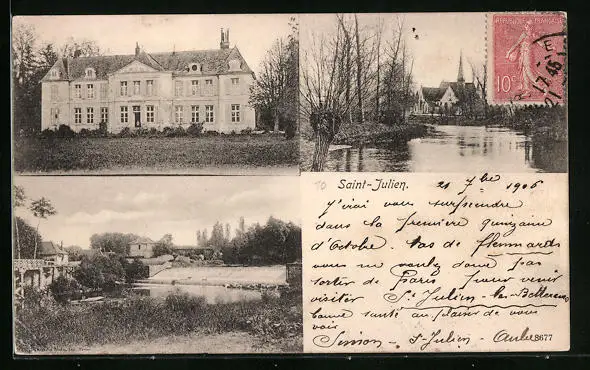 RÉPUBLIQUE FRANÇAISE
10c
Saint-Julien.
21 7bre 1906
J'irai vous surprendre
dans la première quinzaine
d'Octobre. Tas de flemmards
vous ne voulez donc pas
sortir de Paris pour venir
visiter St-Julien-les-
bonne santé au plaisir de vous
voir
Simon - St-Julien - Aube
8677